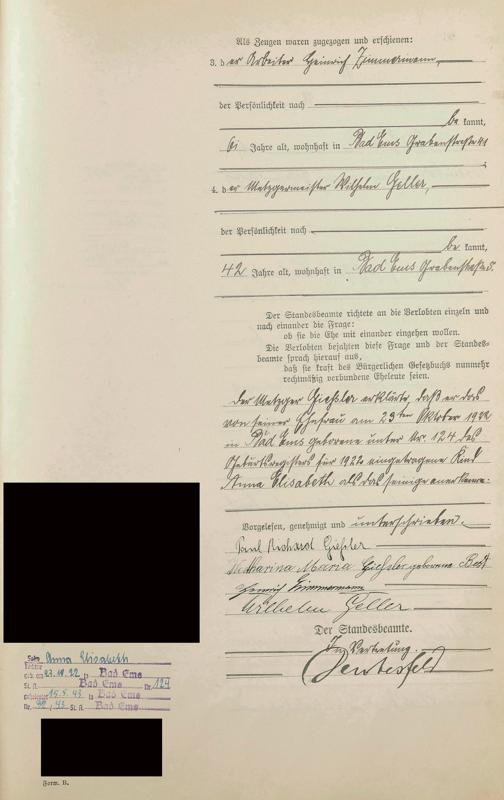 Als Zeugen waren zugezogen und erschienen:
3. der Arbeiter Heinrich Zimmermann,
der Persönlichkeit nach
be kannt,
61 Jahre alt, wohnhaft in Bad Ems Grabenstraße 41
4. der Metzgermeister Wilhelm Geller,
der Persönlichkeit nach
be kannt,
42 Jahre alt, wohnhaft in Bad Ems Grabenstraße 5.
Der Standesbeamte richtete an die Verlobten einzeln und
nach einander die Frage:
ob sie die Ehe mit einander eingehen wollen.
Die Verlobten bejahten diese Frage und der Standes-
beamte sprach hierauf aus,
daß sie kraft des Bürgerlichen Gesetzbuchs nunmehr
rechtmäßig verbundene Eheleute seien.
Der Metzger Gießler erklärte, daß er das
von seiner Ehefrau am 23ten Oktober 1922
in Bad Ems geborene unter Nr. 124 des
Geburtsregisters für 1922 eingetragene Kind
Anna Elisabeth als das seinige anerkenne.
Vorgelesen, genehmigt und unterschrieben.
Paul Richard Gießler
Katharina Maria Gießler geborene
Heinrich Zimmermann
Wilhelm Geller
Der Standesbeamte.
In Vertretung.
Anna Elisabeth
geb. am 23.10.22 in Bad Ems
St. A. Bad Ems Nr. 124
15.5.43 in Bad Ems
Nr. /43 St. A. Bad Ems
Form. B.